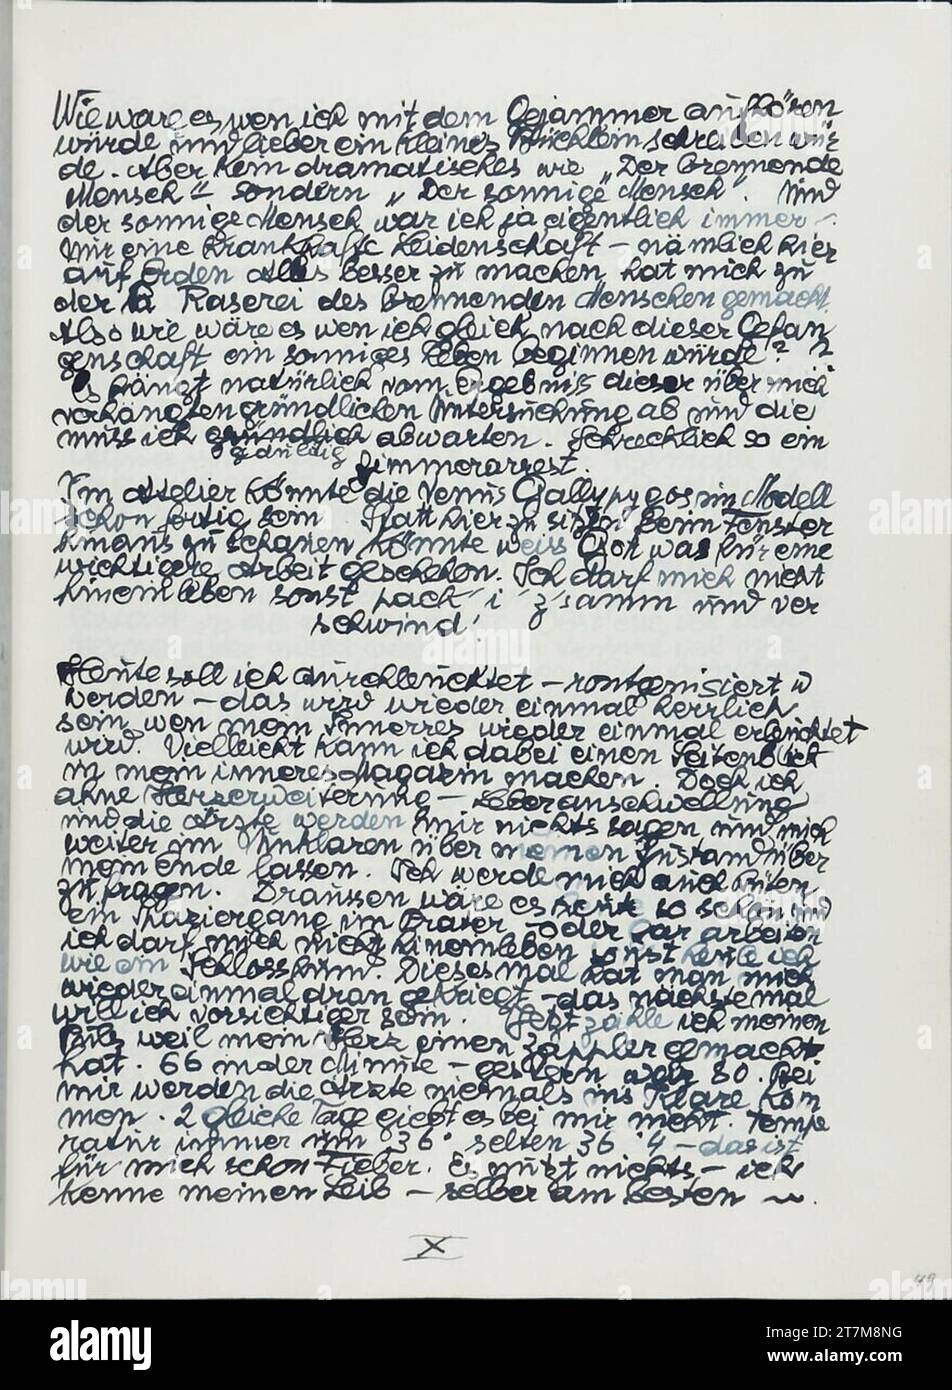 Wie ware es wen ich mit dem Gejammer aufhören
würde und lieber ein kleines Büchlein schreiben wür
de. Aber kein dramatisches wie „Der brennende
Mensch" sondern „Der sonnige Mensch". Und
der sonnige Mensch war ich ja eigentlich immer –
Mir eine krankhafte Leidenschaft – nämlich hier
auf Erden Alles besser zu machen hat mich zu
der Raserei des brennenden Menschen gemacht.
Also wie wäre es wen ich gleich nach dieser Gefan
genschaft ein sonniges Leben beginnen würde? ?
Es hängt natürlich vom Ergebniss dieser über mich
verhängten gründlichen Untersuchung ab und die
muss ich gründlich abwarten. Schrecklich so ein
geduldig Zimmerarrest.
Im Atelier könnte die Venus Gallypygos im Modell
schon fertig sein. Statt hier zu sitzen beim Fenster
hinans zu schauen könnte weiss Gott was für eine
wichtigere Arbeit geschehen. Ich darf mich nicht
hineinleben sonst pack i z'samm und ver
schwind!
Heute soll ich durchleuchtet – rontgenisiert w
werden – das wird wieder einmal herrlich
sein wen mein Innerres wieder einmal erleuchtet
wird. Vielleicht kann ich dabei einen Seitenblick
in mein inneres Magazin machen. Doch ich
ahne Herzerweiterung – Leberanschwellung
und die Arzte werden mir nichts sagen und mich
weiter im Unklaren über meinen Zustand über
mein ende lassen. Ich werde mich auch hüten
zu fragen. Draussen wäre es heute so schön und
ein Spaziergang im Prater – oder gar arbeiten
ich darf mich nicht hineinleben sonst heule ich
wie ein Schlosshund. Dieses mal hat man mich
wieder einmal dran gekriegt – das nächste mal
will ich vorsichtiger sein. Jetzt zähle ich meinen
Puls weil mein Herz einen Zappler gemacht
hat. 66 in der Minute – gestern war 80. Bei
mir werden die Arzte niemals ins Klare kom
men. 2 gleiche Tage giebt es bei mir nicht. Tempe
ratur immer um 36° selten 36°4 – das ist
für mich schon Fieber. Es nützt nichts – ich
kenne meinen Leib – selber am besten ~.
X
49
alamy
Image ID: 2T7M8NG
www.alamy.com